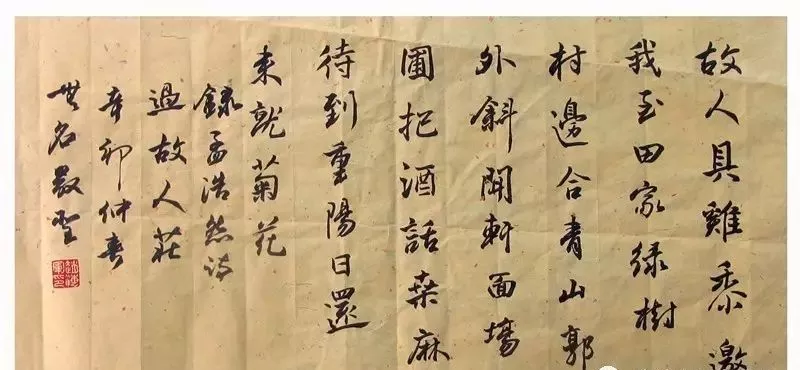 故人具雞黍邀
我至田家綠樹
村邊合青山郭
外斜開軒面場
圃把酒話桑麻
待到重陽日還
来就菊花
録孟浩然詩
過故人莊
辛卯仲春
名